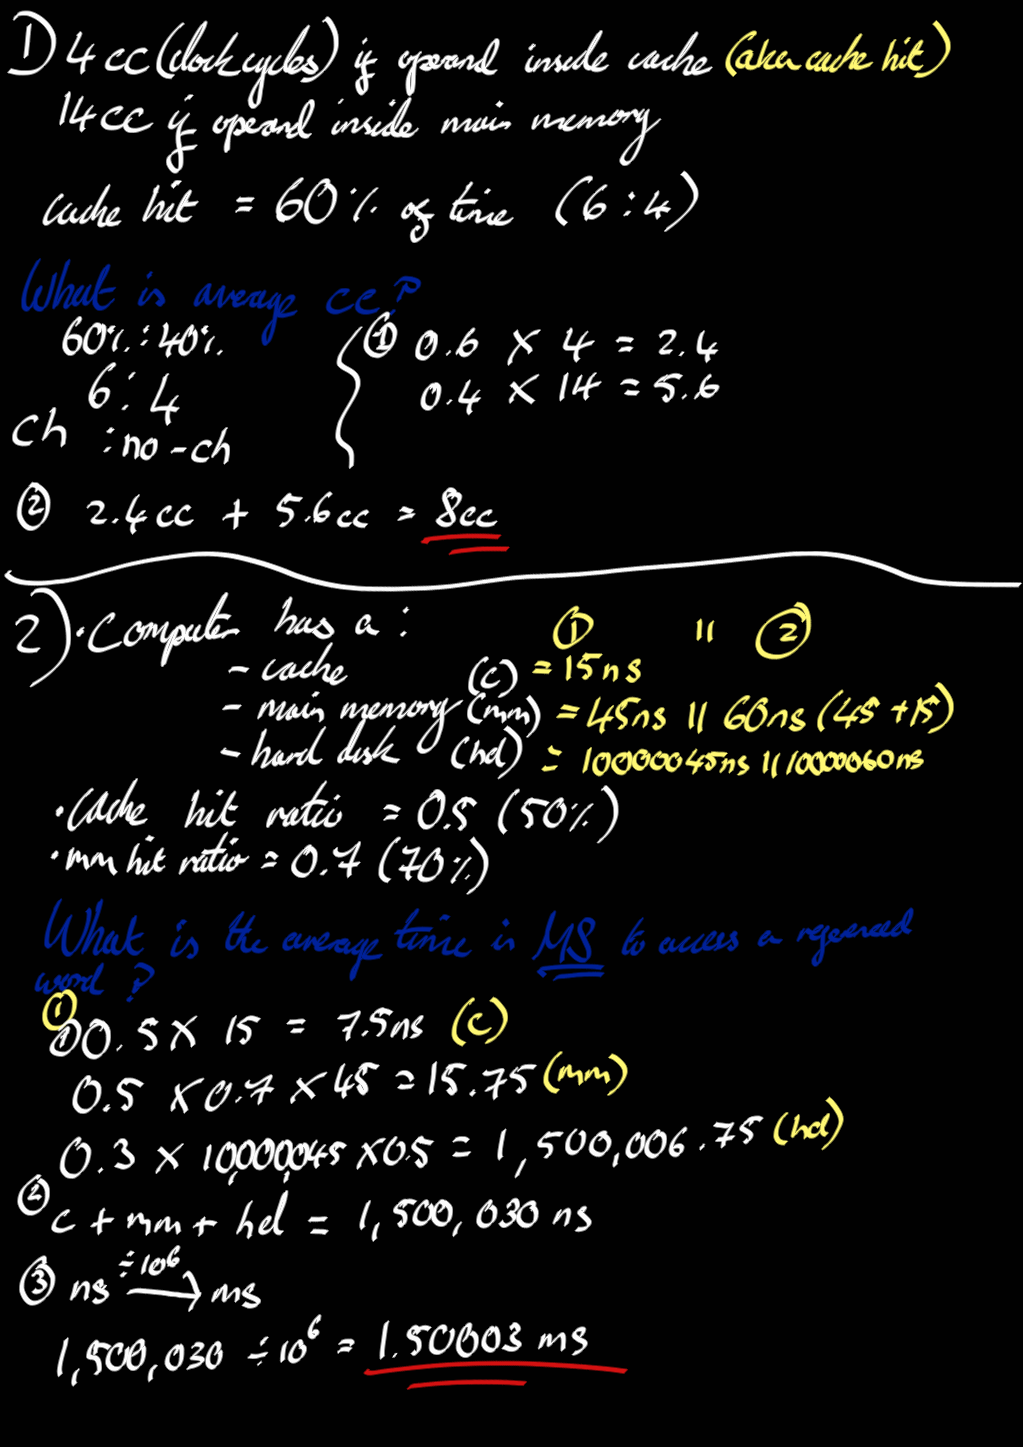 1) 4cc (clock cycles) if operand inside cache (aka cache hit)
14cc if operand inside main memory
cache hit = 60% of time (6:4)
What is average cc?
60% : 40%
6 : 4
ch : no-ch
① 0.6 × 4 = 2.4
0.4 × 14 = 5.6
② 2.4cc + 5.6cc = 8cc
2) • Computer has a : ① || ②
- cache (c) = 15ns
- main memory (mm) = 45ns || 60ns (45+15)
- hard disk (hd) = 10000045ns || 10000060ns
• Cache hit ratio = 0.5 (50%)
• mm hit ratio = 0.7 (70%)
What is the average time in MS to access a
word?
① ① 0.5 × 15 = 7.5ns (c)
0.5 × 0.7 × 45 = 15.75 (mm)
0.3 × 10,000,045 × 0.5 = 1,500,006.75 (hd)
② c + mm + hd = 1,500,030 ns
③ ns ÷10⁶ → ms
1,500,030 ÷ 10⁶ = 1.50003 ms